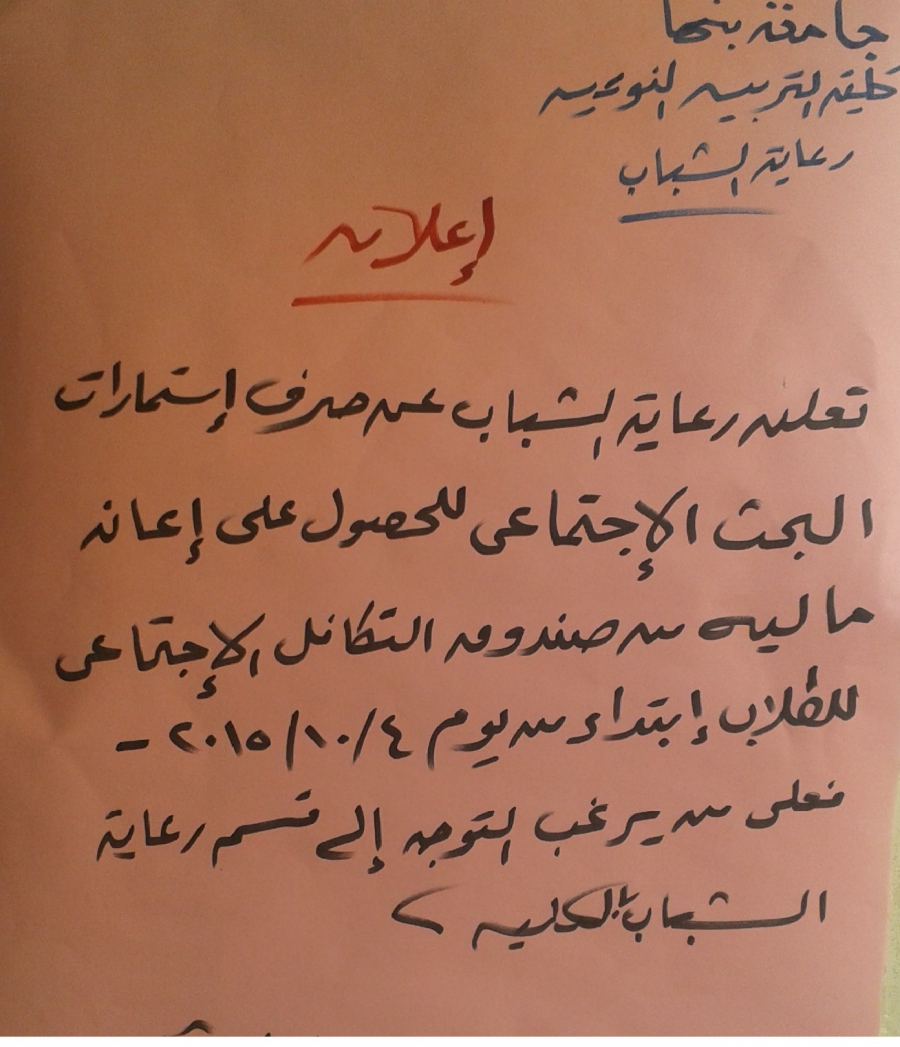 جامعة بنها
كلية التربيه النوعيه
رعاية الشباب
إعلان
تعلن رعاية الشباب عن صرف إستمارات
البحث الإجتماعى للحصول على إعانه
ماليه من صندوق التكافل الإجتماعى
للطلاب إبتداء من يوم ٤/١٠/٢٠١٥ -
فعلى من يرغب التوجه إلى قسم رعاية
الشباب بالكليه